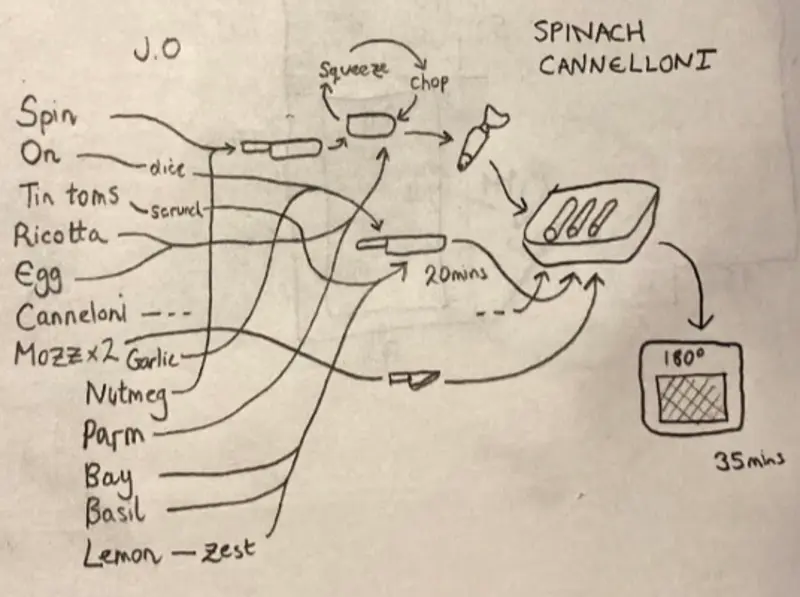 J.O
SPINACH
CANNELLONI
Squeeze
chop
Spin
On
dice
Tin toms
scrunch
Ricotta
Egg
20mins
Canneloni
Mozz x2
Garlic
180°
Nutmeg
Parm
35mins
Bay
Basil
Lemon — zest